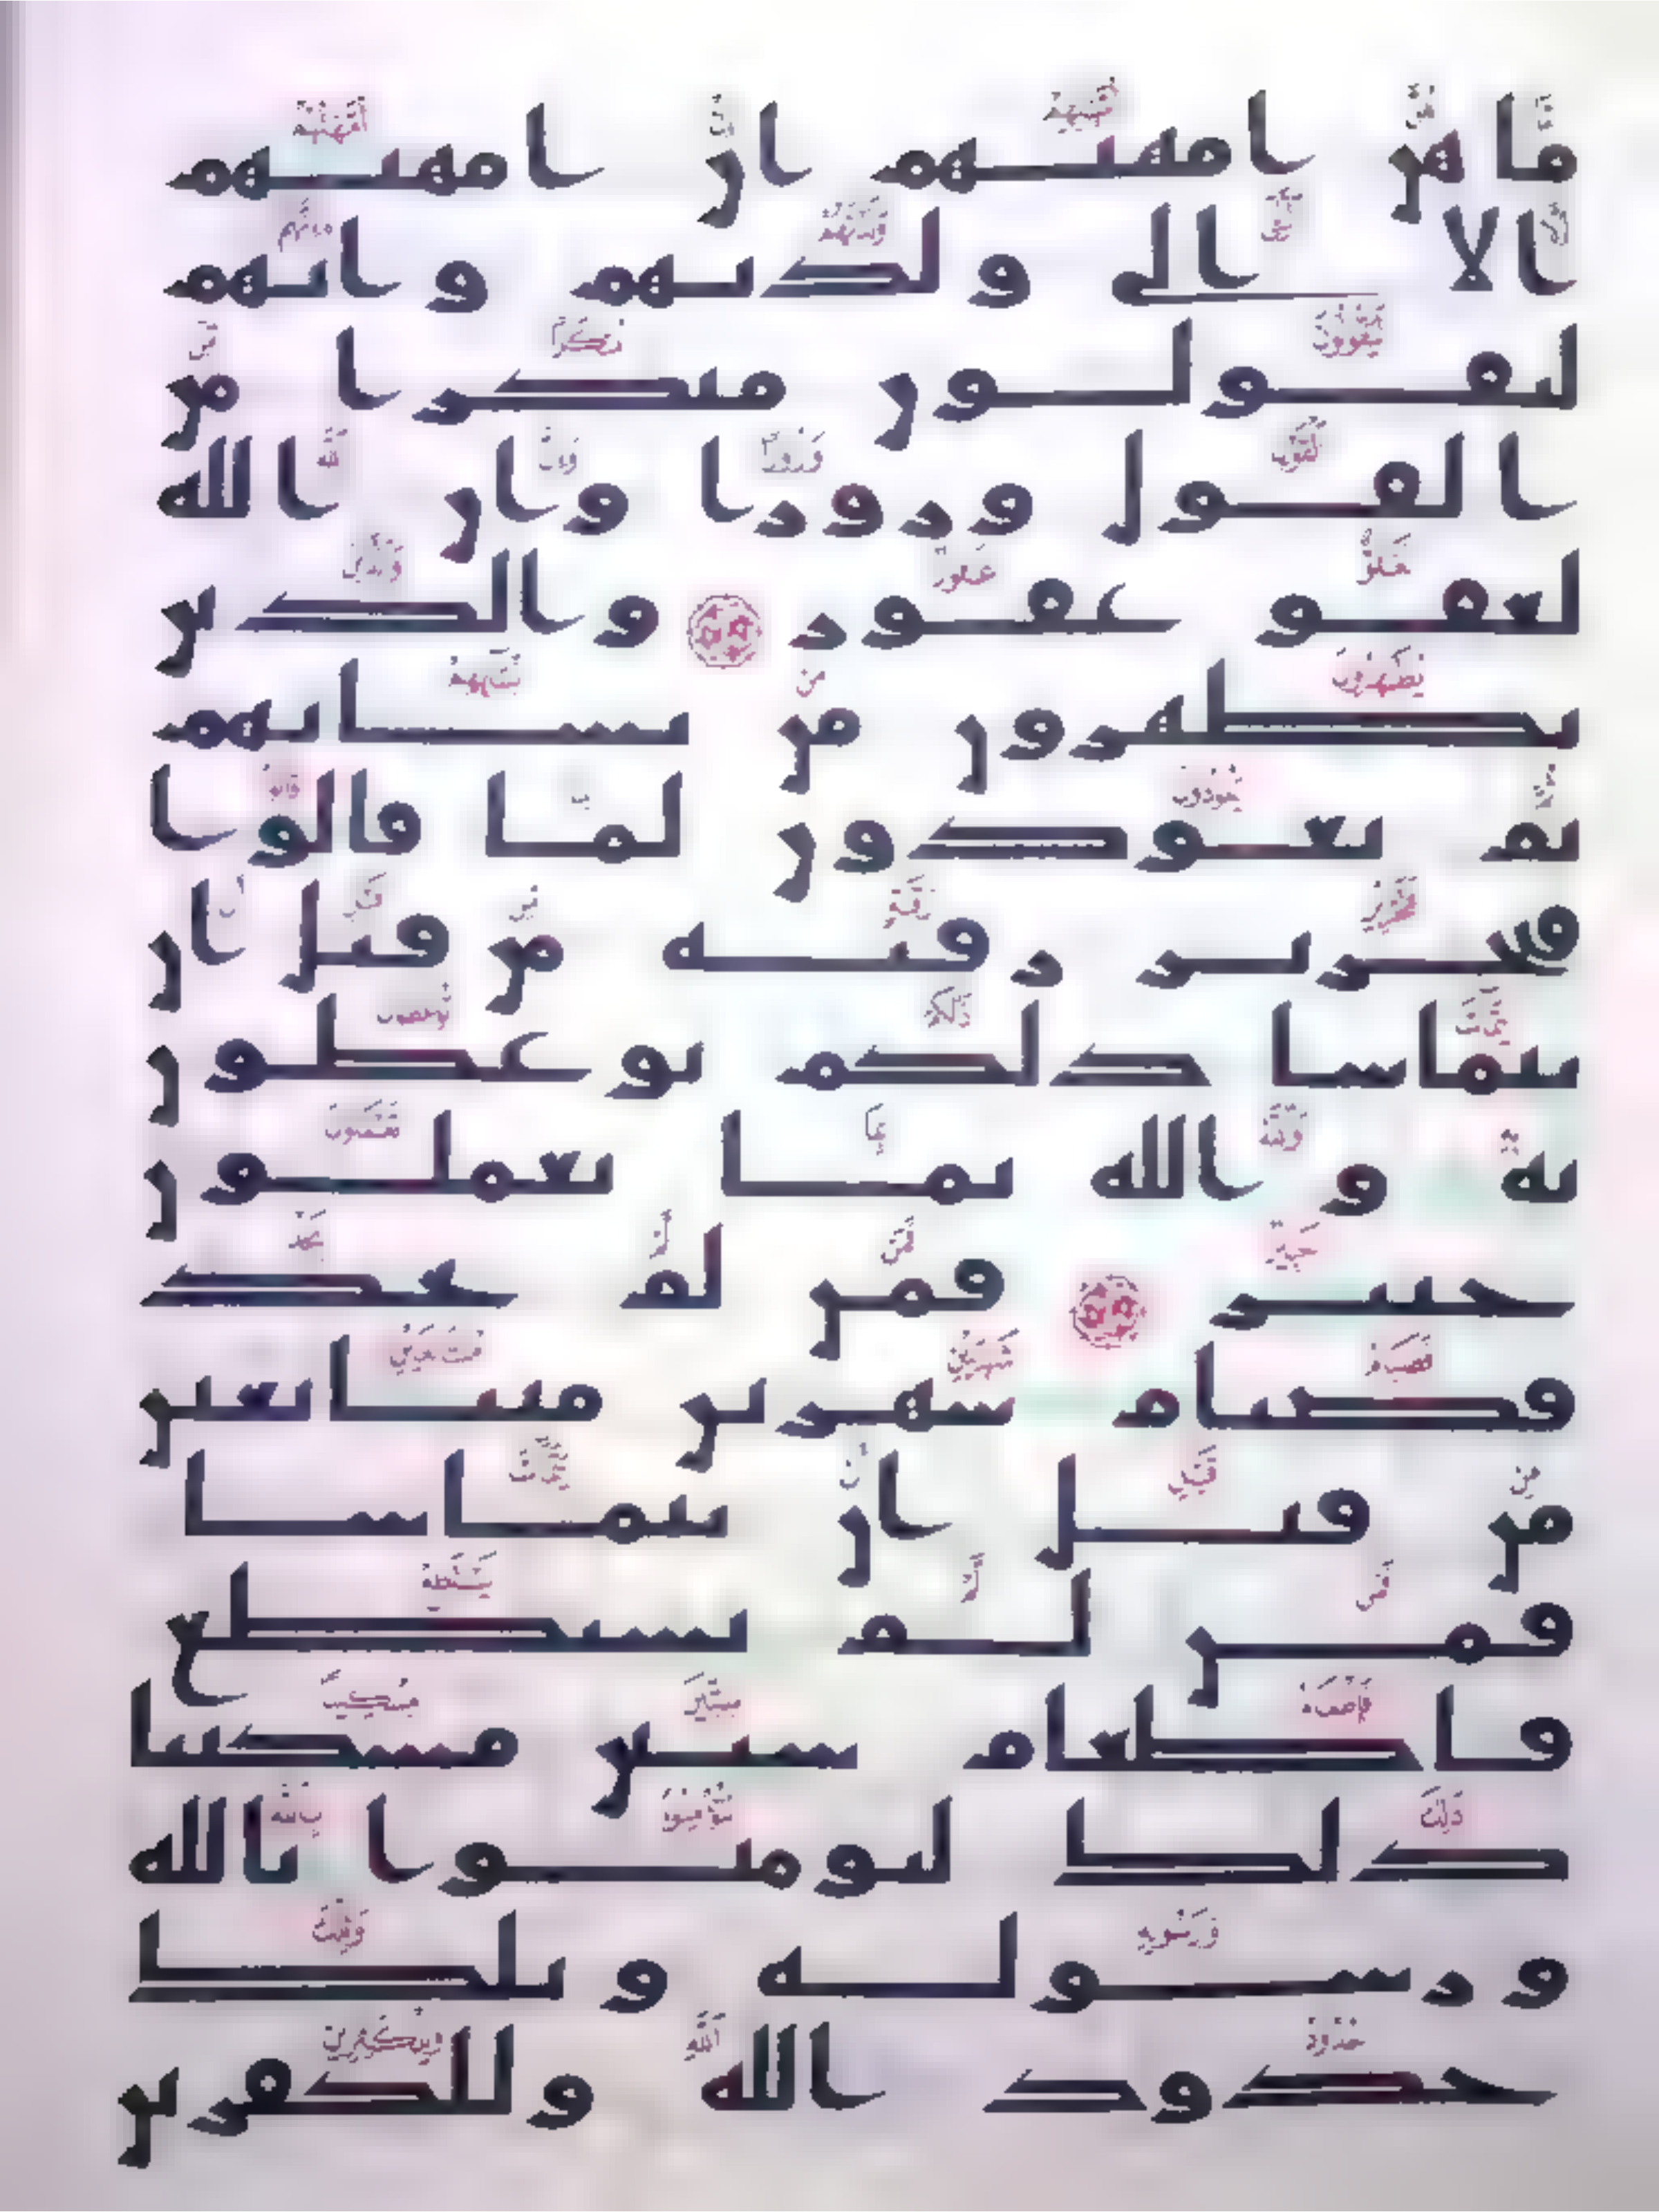 ما هن امهتهم ان امهتهم
الا الى ولدنهم وانهم
ليقولون منكرا من
القول وزورا وان الله
لعفو غفور والذين
يظهرون من نسائهم
ثم يعودون لما قالوا
فتحرير رقبة من قبل ان
يتماسا ذلكم توعظون
به والله بما تعملون
خبير فمن لم يجد
فصيام شهرين متتابعين
من قبل ان يتماسا
فمن لم يستطع
فاطعام ستين مسكينا
ذلك لتومنوا بالله
ورسوله وتلك
حدود الله وللكفرين